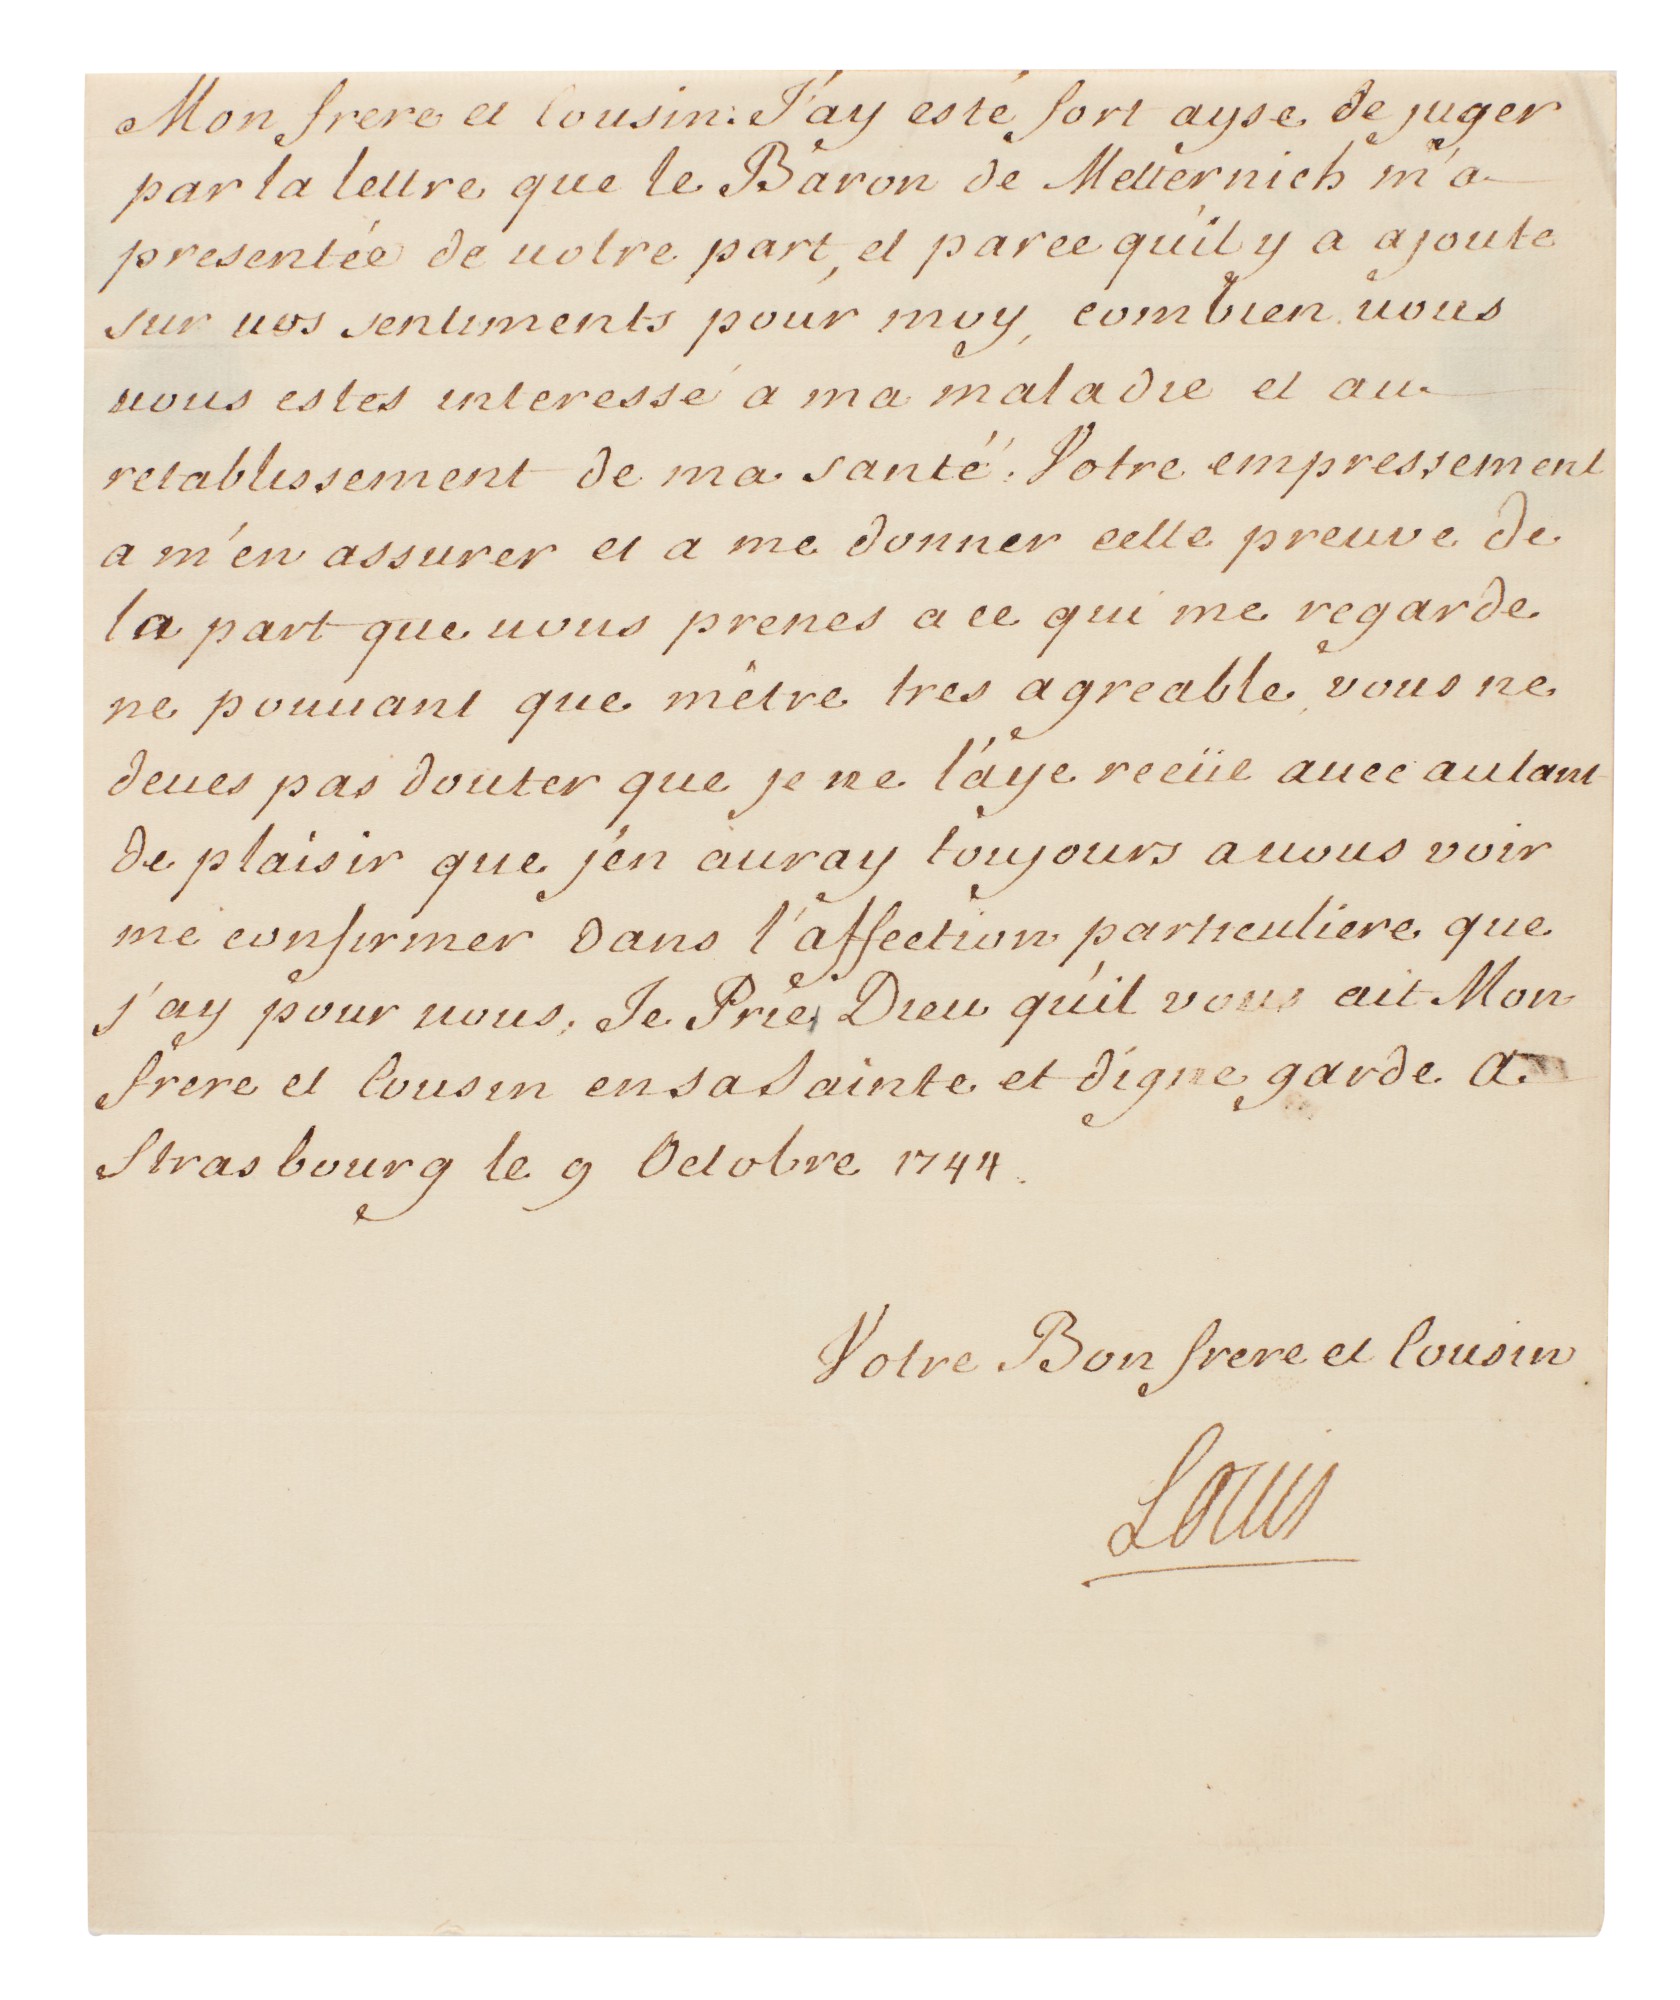 Mon frere et Cousin. J'ay esté fort ayse de juger
par la lettre que le Baron de Metternich m'a
presentée de uotre part, et parce qu'il y a ajoute
sur uos sentiments pour moy, combien uous
uous estes interessé a ma maladie et au
retablissement de ma santé. Votre empressement
a m'en assurer et a me donner cette preuve de
la part que uous prenes a ce qui me regarde
ne pouuant que m'être tres agreable, vous ne
deues pas douter que je ne l'aye receüe auec autant
de plaisir que j'en auray toujours a uous voir
me confirmer dans l'affection particuliere que
j'ay pour uous, Je Prie Dieu qu'il vous ait Mon
frere et Cousin en sa Sainte et digne garde A
Strasbourg le 9 Octobre 1744.
Votre Bon frere et Cousin
Louis